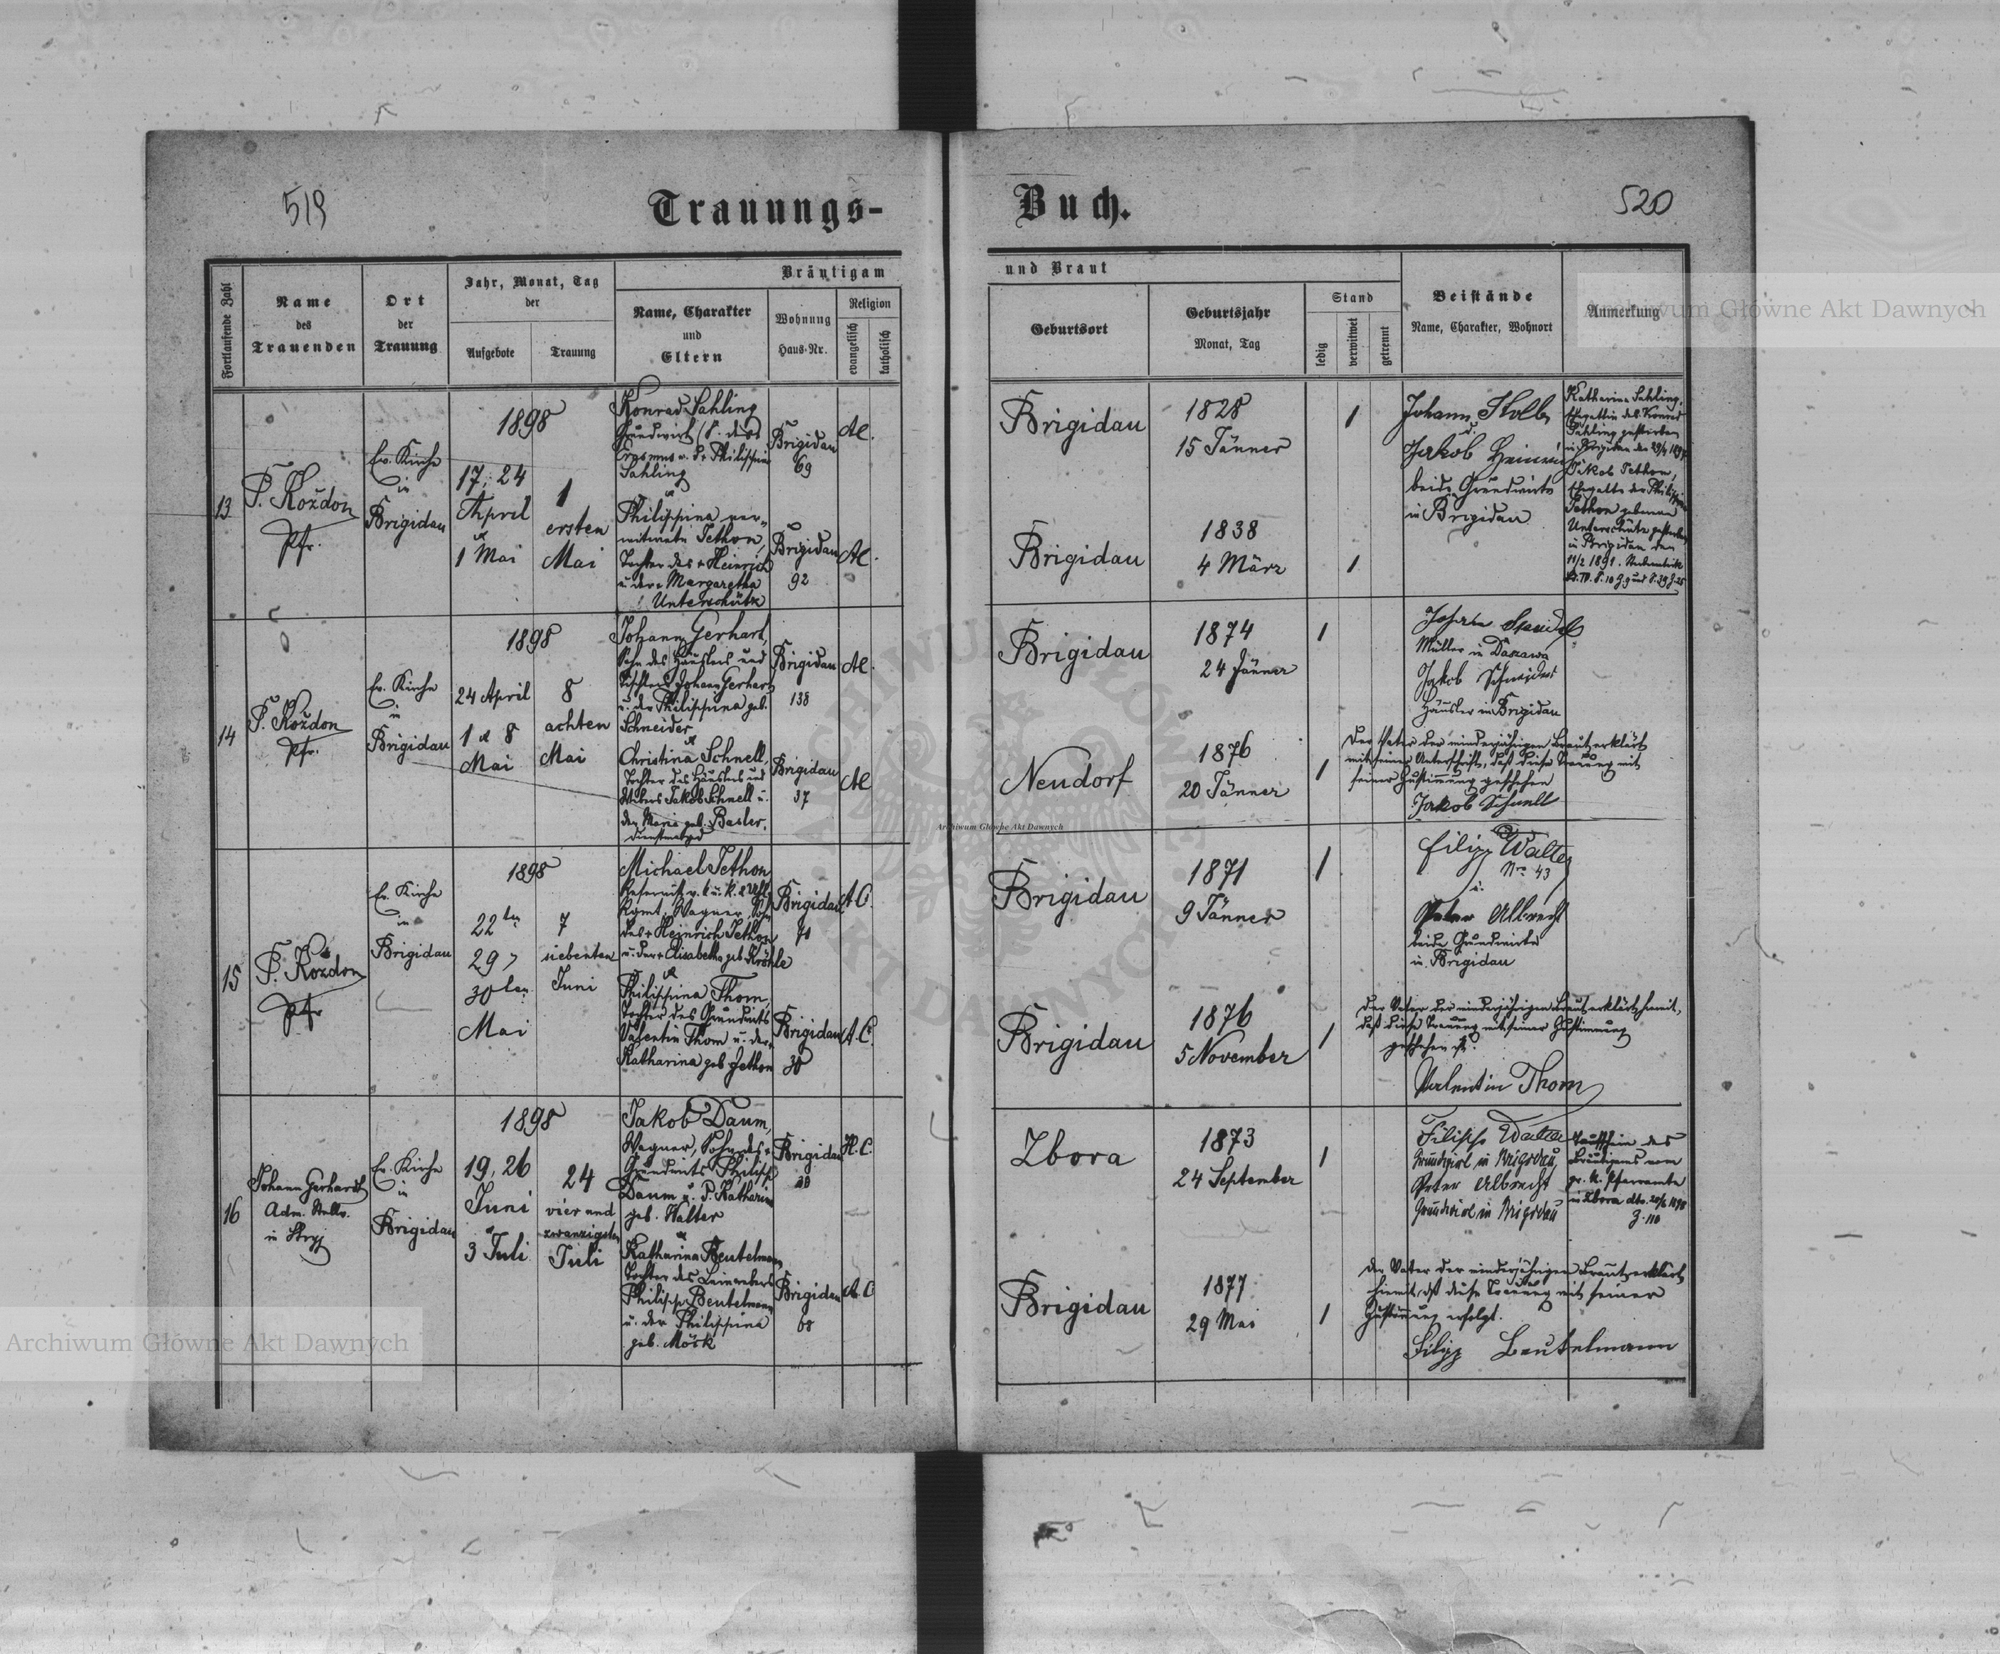 519
Trauungs-
Buch.
520
Fortlaufende Zahl
Name
des
Trauenden
Ort
der
Trauung
Jahr, Monat, Tag
der
Aufgebote
Trauung
Bräutigam
Name, Charakter
und
Eltern
Wohnung
Haus-Nr.
Religion
evangelisch
katholisch
und Braut
Geburtsort
Geburtsjahr
Monat, Tag
Stand
ledig
verwitwet
getrennt
Beistände
Name, Charakter, Wohnort
Anmerkung
13
P. Koždon
Pfr.
Ev. Kirche
in
Brigidau
1898
17; 24
April
1 Mai
1
ersten
Mai
Konrad Sahling
Grundwirt
Philippine
Sahling
Brigidau
69
Philippina ver-
witwete Jethon,
Tochter des + Heinrich
u. der + Margaretha
Unterschütz
Brigidau
92
Brigidau
1828
15 Jänner
1
Brigidau
1838
4 März
1
Johann Kolb
u.
Jakob Heinrich
beide Grundwirte
in Brigidau
Katharina Sahling,
Ehegattin des Konrad
Sahling gestorben
in Brigidau
Jakob Jethon,
Ehegatte der Philippina
Jethon geborene
Unterschütz gestorben
in Brigidau den
11/2 1891.
14
P. Koždon
Pfr.
Ev. Kirche
in
Brigidau
1898
24 April
1 & 8
Mai
8
achten
Mai
Johann Gerhart,
Sohn des Häuslers und
Tischlers Johann Gerhart
u. der Philippina geb.
Schneider
Brigidau
138
Christina Schnell,
Tochter des Häuslers und
Webers Jakob Schnell u.
der Maria geb. Basler,
Brigidau
37
Brigidau
1874
24 Jänner
1
Neudorf
1876
20 Jänner
1
Müller in Daszawa
Jakob Schneider
Häusler in Brigidau
Der Vater der minderjährigen Braut erklärt
mit seiner Unterschrift, daß diese Trauung mit
seiner Zustimmung geschehen
Jakob Schnell
15
P. Koždon
Pfr
Ev. Kirche
in
Brigidau
1898
22ten
29,
30ten
Mai
7
siebenten
Juni
Michael Jethon
Wagner, Sohn
des + Heinrich Jethon
u. der + Elisabetha geb. Kröhle
Brigidau
71
A. C.
Philippina Thom,
Tochter des Grundwirts
Valentin Thom u. der
Katharina geb Jethon
Brigidau
38
A. C.
Brigidau
1871
9 Jänner
1
Brigidau
1876
5 November
1
Filipp Walter
Nro 43
u.
Peter Albrecht
beide Grundwirte
in Brigidau
Der Vater der minderjährigen Braut erklärt hiemit,
daß diese Trauung mit seiner Zustimmung
geschehen ist.
Valentin Thom
16
Johann Gerhardt
Adm. Stellv.
in Stryj
Ev. Kirche
in
Brigidau
1898
19, 26
Juni
3 Juli
24
vier und
zwanzigsten
Juli
Jakob Daum,
Wagner, Sohn des
Grundwirts Philipp
Daum u. d. Katharina
geb. Walter
Brigidau
H. C.
Katharina Beutelmann
Tochter des Leinwebers
Philipp Beutelmann
u. der Philippina
geb. Mörk
Brigidau
68
A. C
Zbora
1873
24 September
1
Brigidau
1877
29 Mai
1
Filipp Walter
Grundwirt in Brigidau,
Peter Albrecht
Grundwirt in Brigidau
Taufschein des
Bräutigams vom
gr. k. Pfarramte
in Zbora dto. 20/6 1898
Z. 110
Der Vater der minderjährigen Braut erklärt
hiemit, daß diese Trauung mit seiner
Zustimmung erfolgt.
Filipp Beutelmann
Archiwum Główne Akt Dawnych
Archiwum Główne Akt Dawnych
Archiwum Główne Akt Dawnych
ARCHIWUM GŁÓWNE AKT DAWNYCH